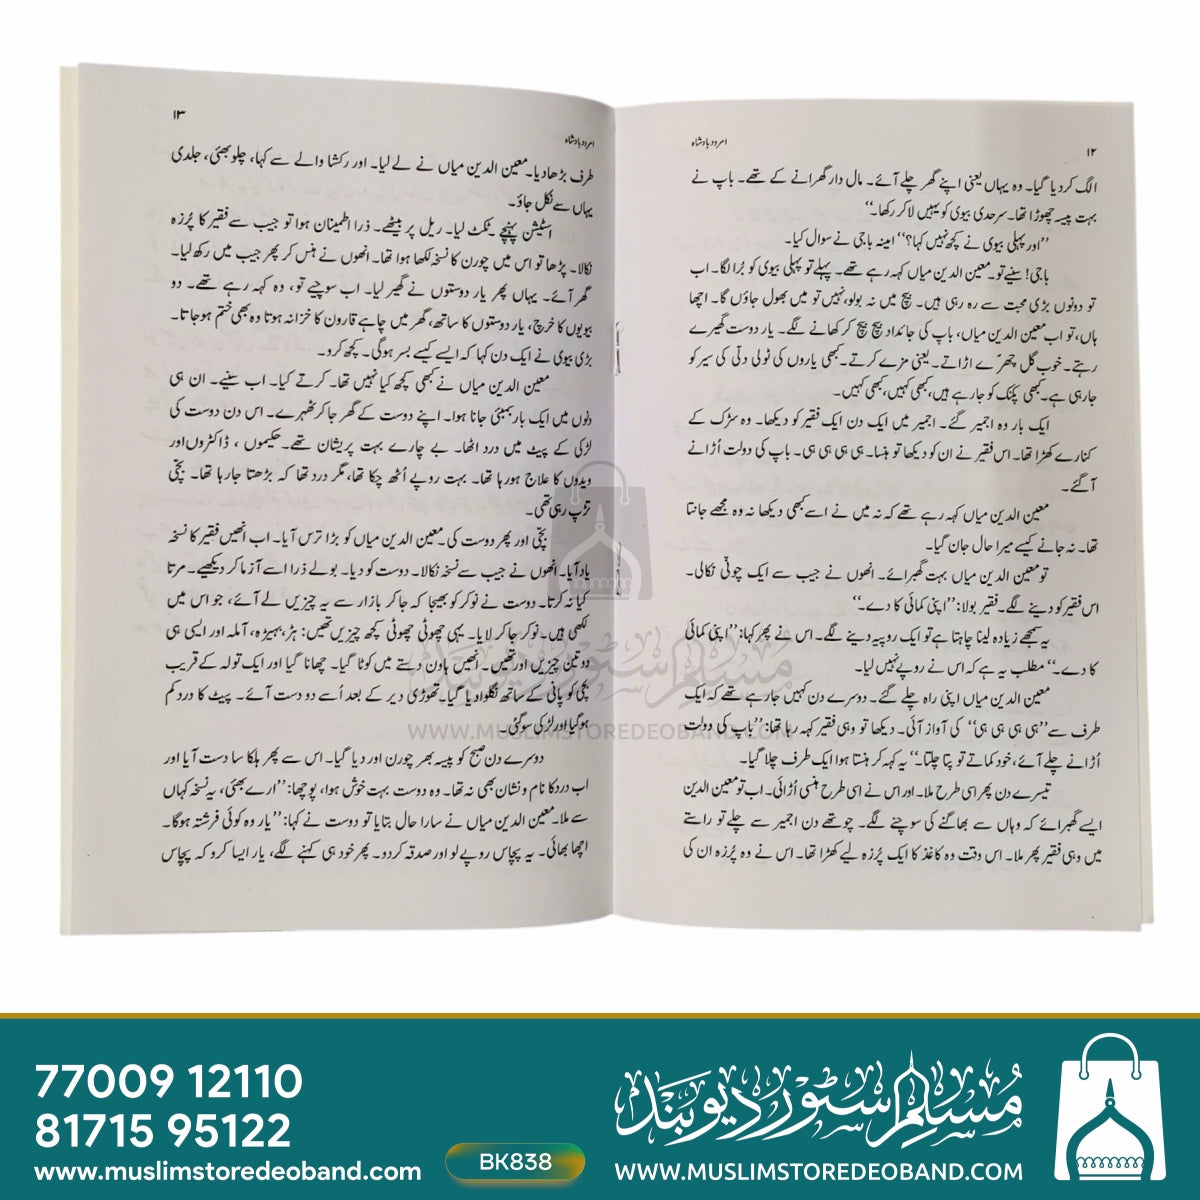 ۱۲
امرود بادشاہ
الگ کر دیا گیا۔ وہ یہاں یعنی اپنے گھر چلے آئے۔ مال دار گھرانے کے تھے۔ باپ نے
بہت پیسہ چھوڑا تھا۔ سرحدی بیوی کو یہیں لا کر رکھا۔‘‘
’’اور پہلی بیوی نے کچھ نہیں کہا؟‘‘ امینہ باجی نے سوال کیا۔
باجی! سنیے تو۔ معین الدین میاں کہہ رہے تھے۔ پہلے تو پہلی بیوی کو بُرا لگا۔ اب
تو دونوں بڑی محبت سے رہ رہی ہیں۔ بیچ میں نہ بولو، نہیں تو میں بھول جاؤں گا۔ اچھا
ہاں، تو اب معین الدین میاں، باپ کی جائداد بیچ بیچ کر کھانے لگے۔ یار دوست گھیرے
رہتے۔ خوب گل چھرّے اڑاتے۔ یعنی مزے کرتے۔ کبھی یاروں کی ٹولی دتّی کی سیر کو
جا رہی ہے۔ کبھی پکنک کو جا رہے ہیں، کبھی کہیں، کبھی کہیں۔
ایک بار وہ اجمیر گئے۔ اجمیر میں ایک دن ایک فقیر کو دیکھا۔ وہ سڑک کے
کنارے کھڑا تھا۔ اس فقیر نے ان کو دیکھا تو ہنسا۔ ہی ہی ہی ہی۔ باپ کی دولت اُڑانے
آ گئے۔
معین الدین میاں کہہ رہے تھے کہ نہ میں نے اسے کبھی دیکھا نہ وہ مجھے جانتا
تھا۔ نہ جانے کیسے میرا حال جان گیا۔
تو معین الدین میاں بہت گھبرائے۔ انھوں نے جیب سے ایک چونّی نکالی۔
اس فقیر کو دینے لگے۔ فقیر بولا: ’’اپنی کمائی کا دے۔‘‘
یہ سمجھے زیادہ لینا چاہتا ہے تو ایک روپیہ دینے لگے۔ اس نے پھر کہا: ’’اپنی کمائی
کا دے۔‘‘ مطلب یہ ہے کہ اس نے روپے نہیں لیا۔
معین الدین میاں اپنی راہ چلے گئے۔ دوسرے دن کہیں جا رہے تھے کہ ایک
طرف سے ’’ہی ہی ہی ہی‘‘ کی آواز آئی۔ دیکھا تو وہی فقیر کہہ رہا تھا: ’’باپ کی دولت
اُڑانے چلے آئے، خود کماتے تو پتا چلتا۔‘‘ یہ کہہ کر ہنستا ہوا ایک طرف چلا گیا۔
تیسرے دن پھر اسی طرح ملا۔ اور اس نے اسی طرح ہنسی اُڑائی۔ اب تو معین الدین
ایسے گھبرائے کہ وہاں سے بھاگنے کی سوچنے لگے۔ چوتھے دن اجمیر سے چلے تو راستے
میں وہی فقیر پھر ملا۔ اس وقت وہ کاغذ کا ایک پُرزہ لیے کھڑا تھا۔ اس نے وہ پُرزہ ان کی
۱۳
امرود بادشاہ
طرف بڑھا دیا۔ معین الدین میاں نے لے لیا۔ اور رکشا والے سے کہا، چلو بھئی، جلدی
یہاں سے نکل جاؤ۔
اسٹیشن پہنچے ٹکٹ لیا۔ ریل پر بیٹھے۔ ذرا اطمینان ہوا تو جیب سے فقیر کا پُرزہ
نکالا۔ پڑھا تو اس میں چورن کا نسخہ لکھا ہوا تھا۔ انھوں نے ہنس کر پھر جیب میں رکھ لیا۔
گھر آئے۔ یہاں پھر یار دوستوں نے گھیر لیا۔ اب سوچیے تو، وہ کہہ رہے تھے۔ دو
بیویوں کا خرچ، یار دوستوں کا ساتھ، گھر میں چاہے قارون کا خزانہ ہوتا وہ بھی ختم ہو جاتا۔
بڑی بیوی نے ایک دن کہا کہ ایسے کیسے بسر ہوگی۔ کچھ کرو۔
معین الدین میاں نے کبھی کچھ کیا نہیں تھا۔ کرتے کیا۔ اب سنیے۔ ان ہی
دنوں میں ایک بار بمبئی جانا ہوا۔ اپنے دوست کے گھر جا کر ٹھہرے۔ اس دن دوست کی
لڑکی کے پیٹ میں درد اٹھا۔ بے چارے بہت پریشان تھے۔ حکیموں، ڈاکٹروں اور
ویدوں کا علاج ہو رہا تھا۔ بہت روپے اُٹھ چکا تھا، مگر درد تھا کہ بڑھتا جا رہا تھا۔ بچّی
تڑپ رہی تھی۔
بچّی اور پھر دوست کی۔ معین الدین میاں کو بڑا ترس آیا۔ اب انھیں فقیر کا نسخہ
یاد آیا۔ انھوں نے جیب سے نسخہ نکالا۔ دوست کو دیا۔ بولے ذرا اسے آزما کر دیکھیے۔ مرتا
کیا نہ کرتا۔ دوست نے نوکر کو بھیجا کہ جا کر بازار سے یہ چیزیں لے آئے، جو اس میں
لکھی ہیں۔ نوکر جا کر لایا۔ یہی چھوٹی چھوٹی کچھ چیزیں تھیں: ہڑ، بہیڑہ، آملہ اور ایسی ہی
دو تین چیزیں اور تھیں۔ انھیں ہاون دستے میں کوٹا گیا۔ چھانا گیا اور ایک تولہ کے قریب
بچّی کو پانی کے ساتھ نگلوا دیا گیا۔ تھوڑی دیر کے بعد اُسے دو دست آئے۔ پیٹ کا درد کم
ہو گیا اور لڑکی سو گئی۔
دوسرے دن صبح کو پیسہ بھر چورن اور دیا گیا۔ اس سے پھر ہلکا سا دست آیا اور
اب درد کا نام و نشان بھی نہ تھا۔ وہ دوست بہت خوش ہوا، پوچھا: ’’ارے بھئی، یہ نسخہ کہاں
سے ملا۔ معین الدین میاں نے سارا حال بتایا تو دوست نے کہا: ’’یار وہ کوئی فرشتہ ہوگا۔
اچھا بھائی۔ یہ پچاس روپے لو اور صدقہ کر دو۔ پھر خود ہی کہنے لگے، یار ایسا کرو کہ پچاس
مسلم سٹور دیوبند
WWW.MUSLIMSTOREDEOBAND.COM
77009 12110
81715 95122
www.muslimstoredeoband.com
BK838
مسلم سٹور دیوبند
WWW.MUSLIMSTOREDEOBAND.COM